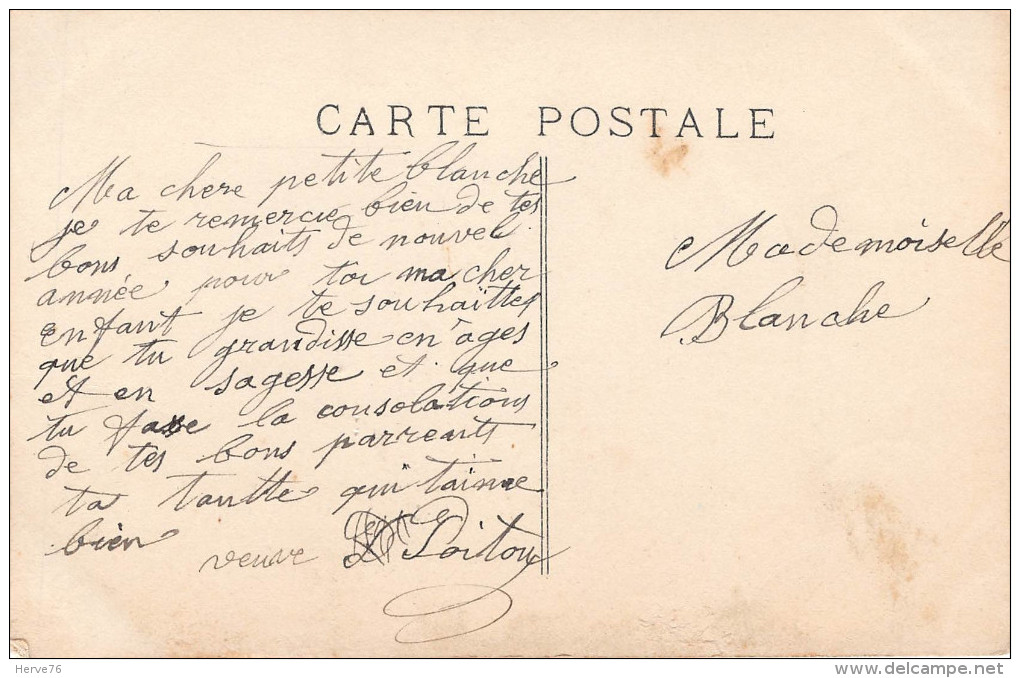 CARTE POSTALE
Ma chere petite blanche
je te remercie bien de tes
bons souhaits de nouvel
année pour toi ma cher
enfant je te souhaittes
que tu grandisse en âges
et en sagesse et que
tu fasse la consolations
de tes bons parrents
ta tantte qui t'aime
bien
veuve Poitou
Mademoiselle
Blanche
Herve76
www.delcampe.net